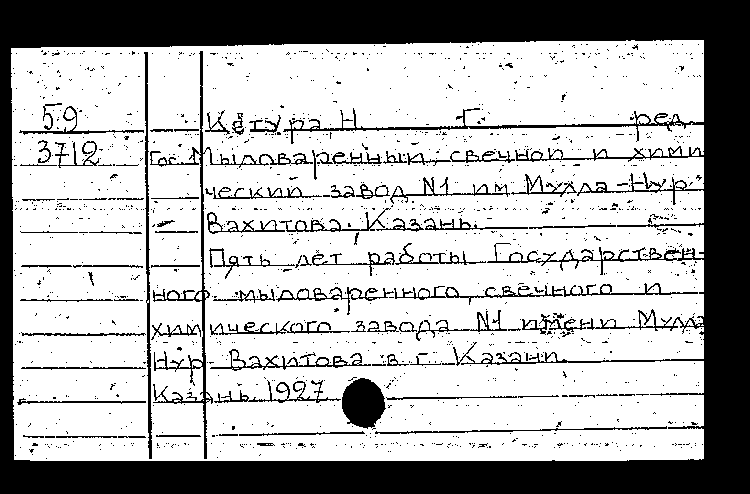 59
3712
Кетура, Н. Г. ред.
Гос. Мыловаренный, свечной и хими
ческий завод №1 им Мулла-Нур
Вахитова. Казань.
Пять лет работы Государствен-
ного мыловаренного, свечного и
химического завода №1 имени Мулла
Нур-Вахитова в г. Казани.
Казань. 1927